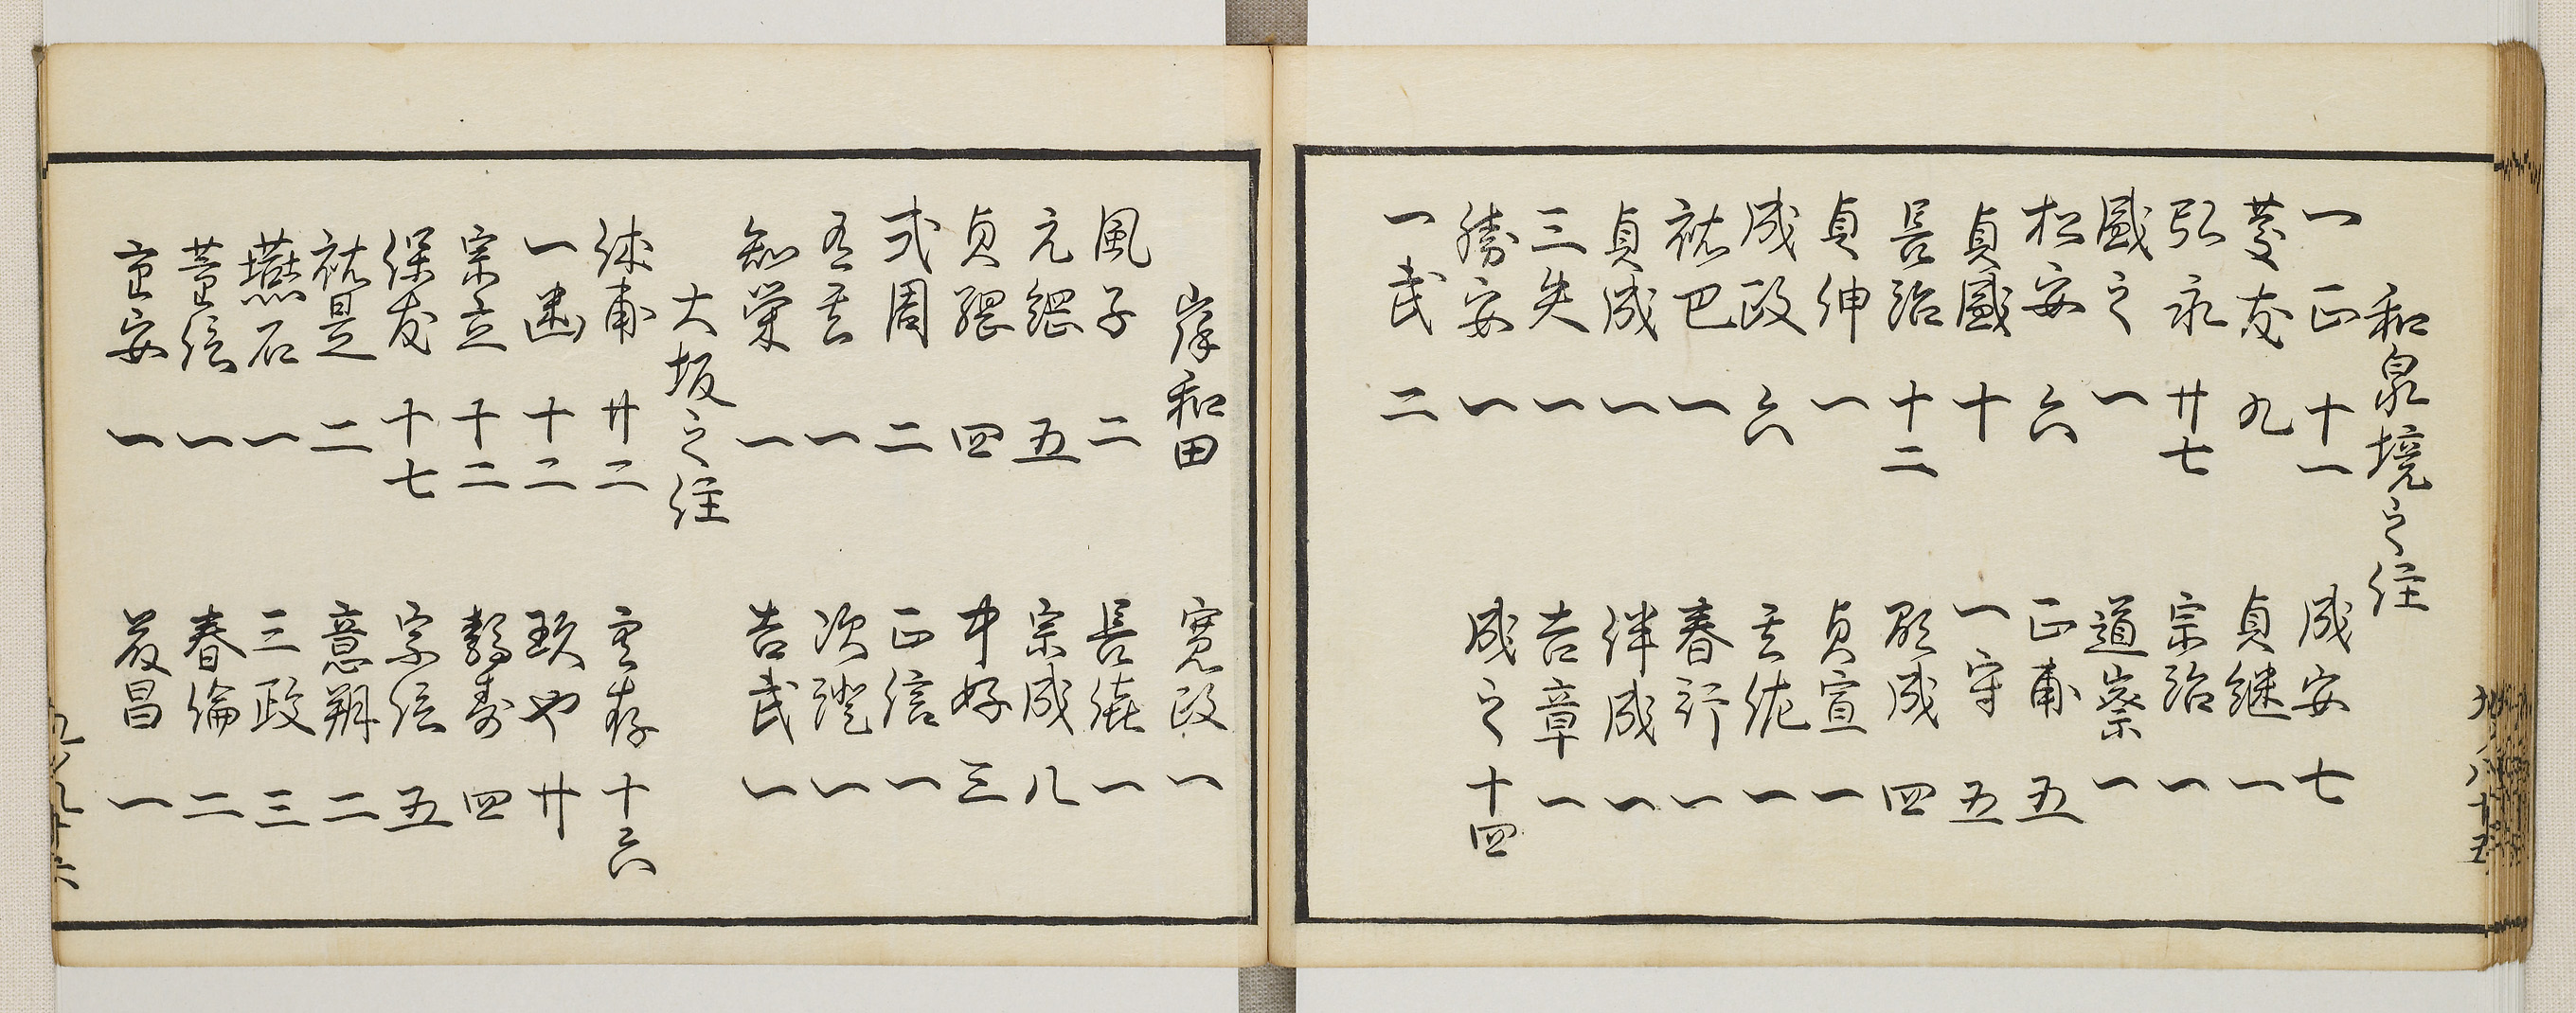 和泉境之住
一正 十一 成安 七
慶友 九 貞継 一
弘永 廿七 宗治 一
盛之 一 道察 一
松安 六 正甫 五
貞盛 十 一守 五
長治 十二 顕成 四
貞伸 一 貞宣 一
成政 六 玄佐 一
祐巴 一 春行 一
貞成 一 伴成 一
三矢 一 吉章 一
勝安 一 成之 十四
一武 二
岸和田 寛政 一
風子 二 長徳 一
元綱 五 宗成 八
貞 四 中好 三
弐周 二 正信 一
一 次 一
知栄 一 吉武 一
大坂之住
休甫 廿二 玄存 十六
一幽 十二 玖也 廿
宗立 十二 鶴寿 四
保友 十七 宗信 五
祐是 二 意朔 二
燕石 一 三政 三
信 一 春倫 二
安 一 昌 一